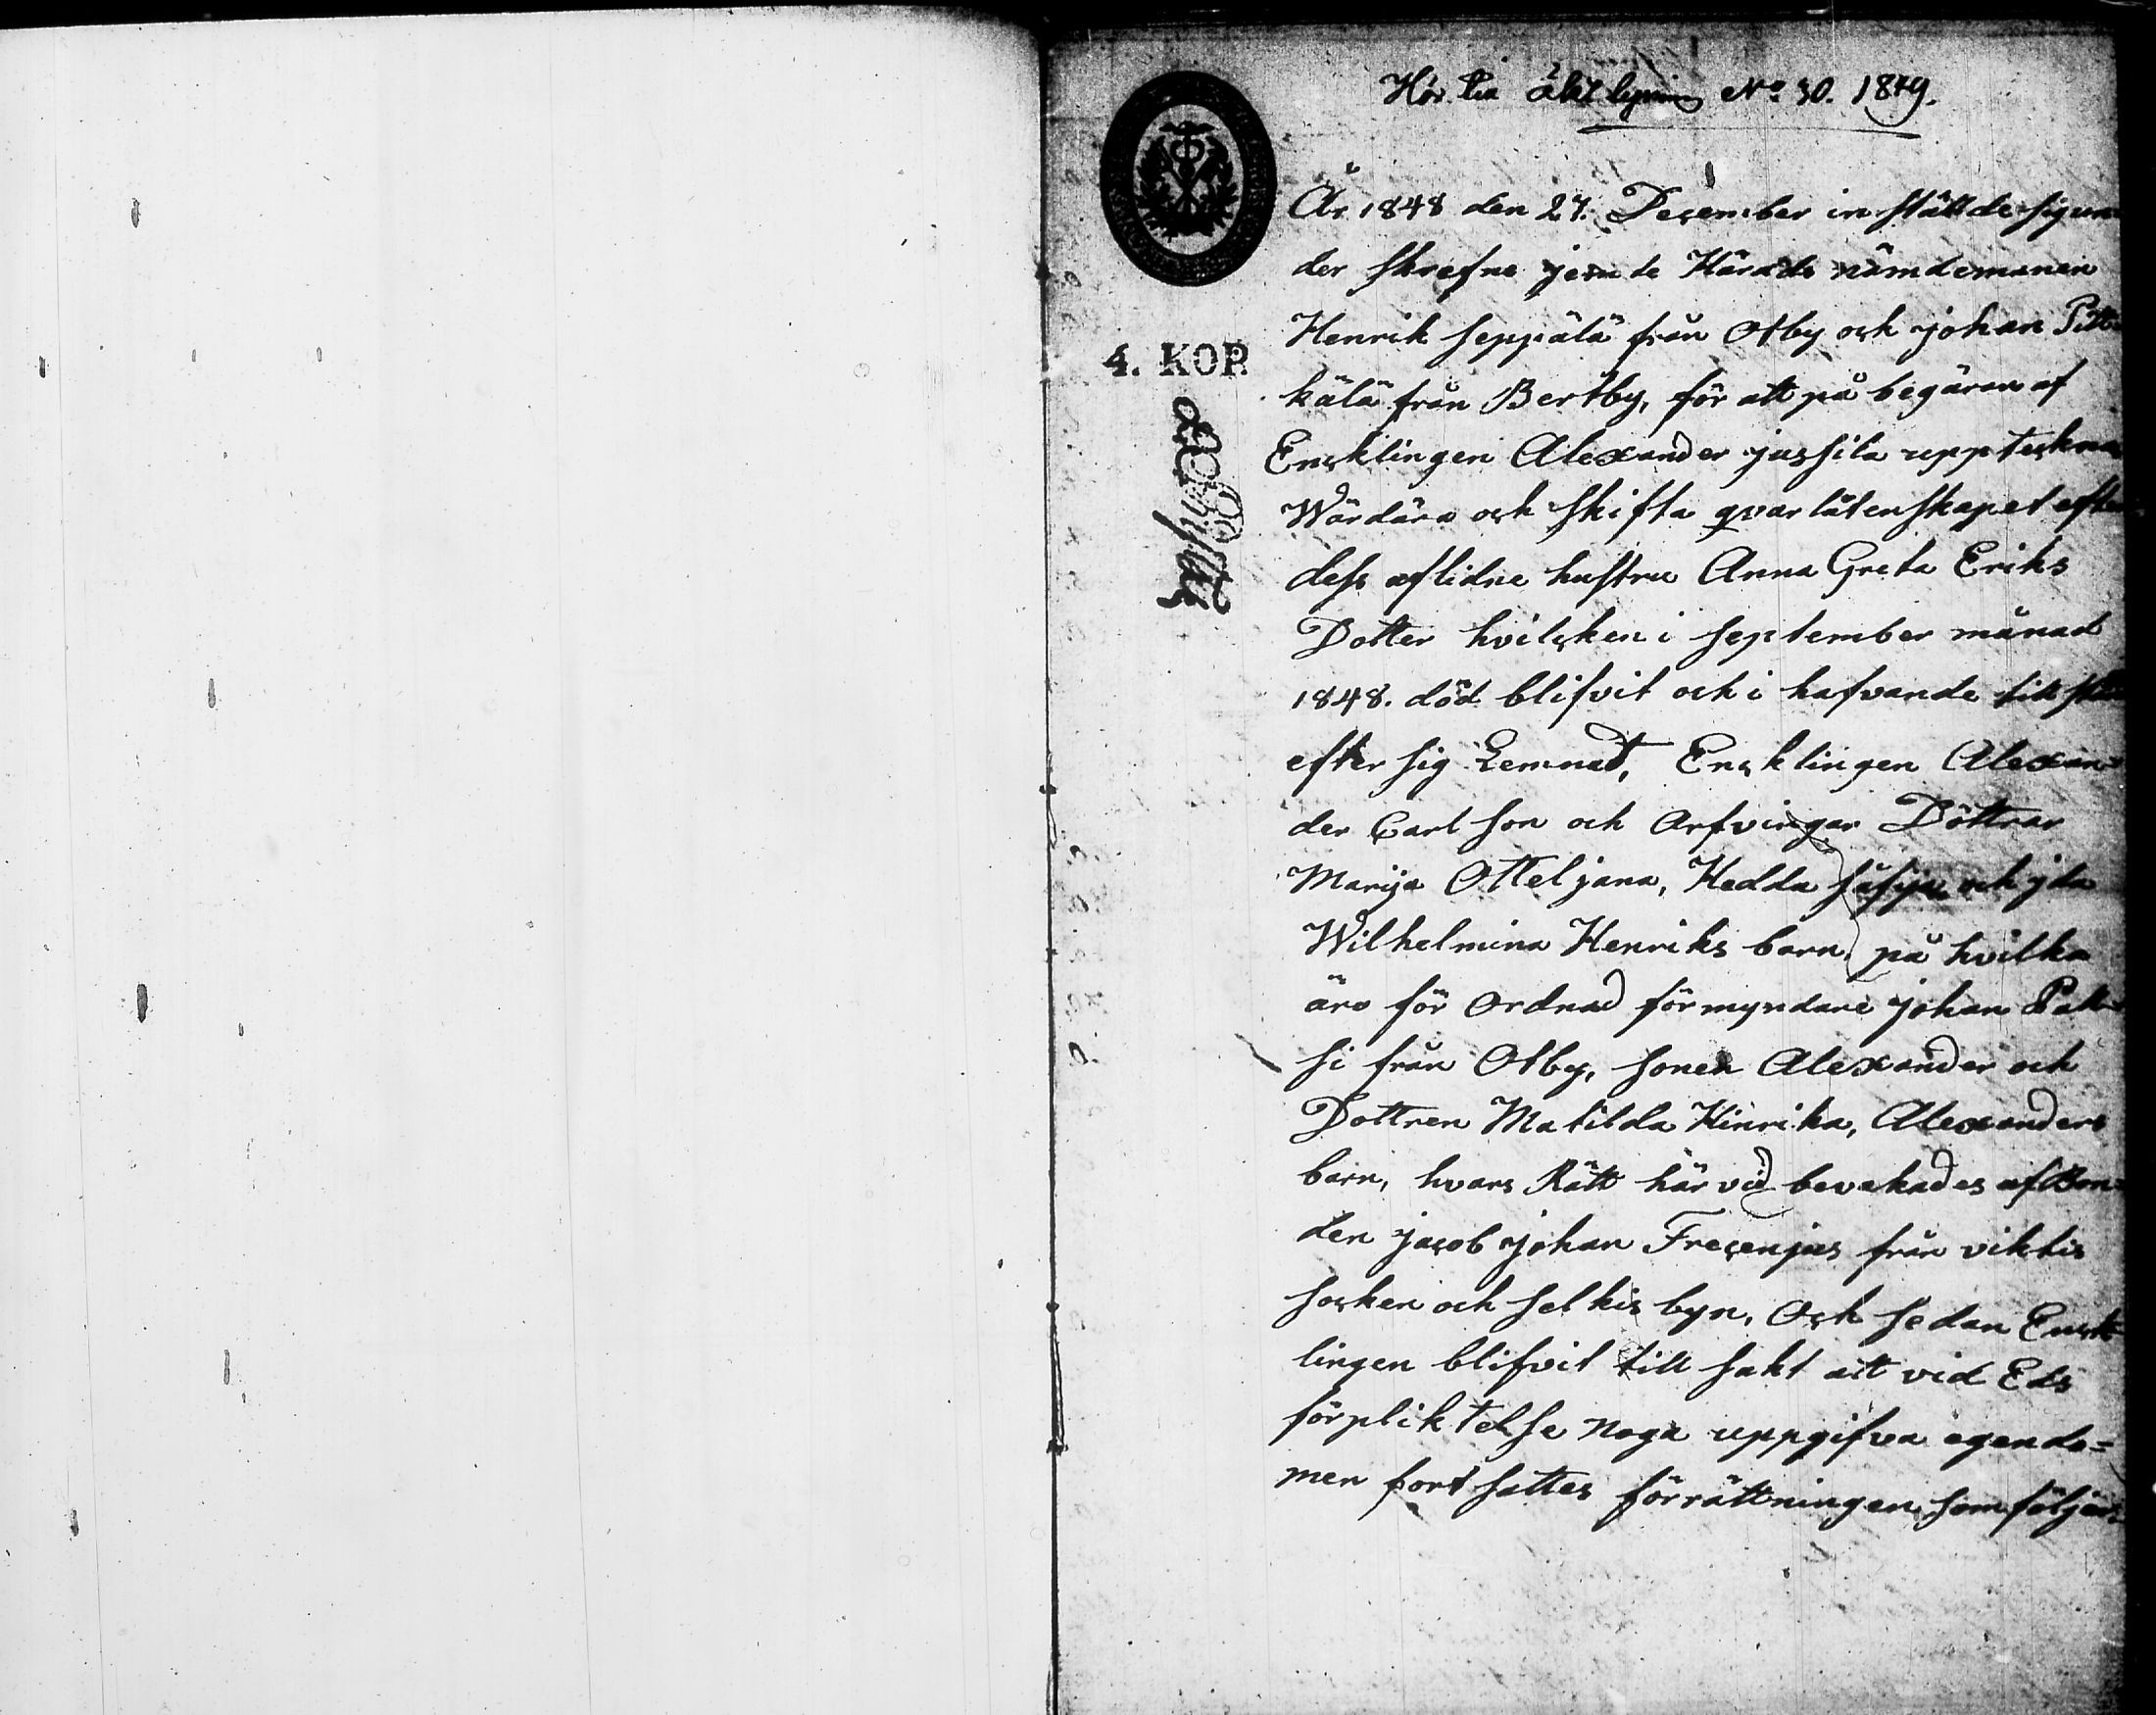 Hör till äktlysning No 30. 1849.
År 1848 den 27. Desember instälde sig un=
der skrefne jemte Härads nämdemanen
Henrik seppälä från Otby och johan Pitt=
4. KOP.
kälä från Bertby, för att på begäran af
Encklingen Alexander jussila uppteckna
Wärdära och skifta qvarlåtenskapet efter
dess aflidne hustru Anna Greta Eriks
Dotter hvilcken i september månad
1848. död blifvit och i hafvande
efter sig Lemnat, Encklingen Alexan=
der Carlson och Arfvingar Döttrar
Marija Otteljana, Hedda och jda
Wilhelmina Henriks barn, på hvilka
äro för ordnad förmyndare johan
si från Otby, sonen Alexander och
Dottren Matilda Hinrika, Alexanders
barn, hvars Rätt här vid bevakades af Bon=
den jacob johan Fresenjus från viktis
socken och selkis byn, Och sedan Enck=
lingen blifvit till sakt att vid Eds
förpliktelse noga uppgifva egendo=
men fort sattes förrättningen som följer: